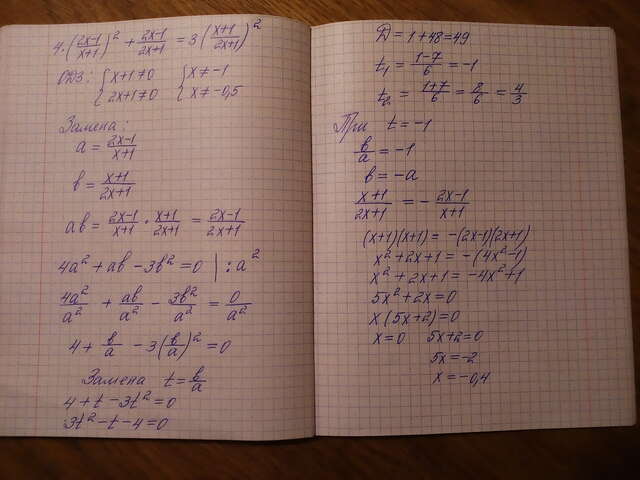 4·(2x-1/x+1)² + 2x-1/2x+1 = 3(x+1/2x+1)²
ОДЗ: { x+1≠0 { x≠-1
{ 2x+1≠0 { x≠-0,5
Замена:
a = 2x-1/x+1
b = x+1/2x+1
ab = 2x-1/x+1 · x+1/2x+1 = 2x-1/2x+1
4a² + ab - 3b² = 0 | : a²
4a²/a² + ab/a² - 3b²/a² = 0/a²
4 + b/a - 3(b/a)² = 0
Замена t = b/a
4 + t - 3t² = 0
3t² - t - 4 = 0
D = 1+48 = 49
t₁ = 1-7/6 = -1
t₂ = 1+7/6 = 8/6 = 4/3
При t = -1
b/a = -1
b = -a
x+1/2x+1 = - 2x-1/x+1
(x+1)(x+1) = -(2x-1)(2x+1)
x² + 2x + 1 = -(4x²-1)
x² + 2x + 1 = -4x² + 1
5x² + 2x = 0
x(5x+2) = 0
x = 0 5x+2=0
5x = -2
x = -0,4